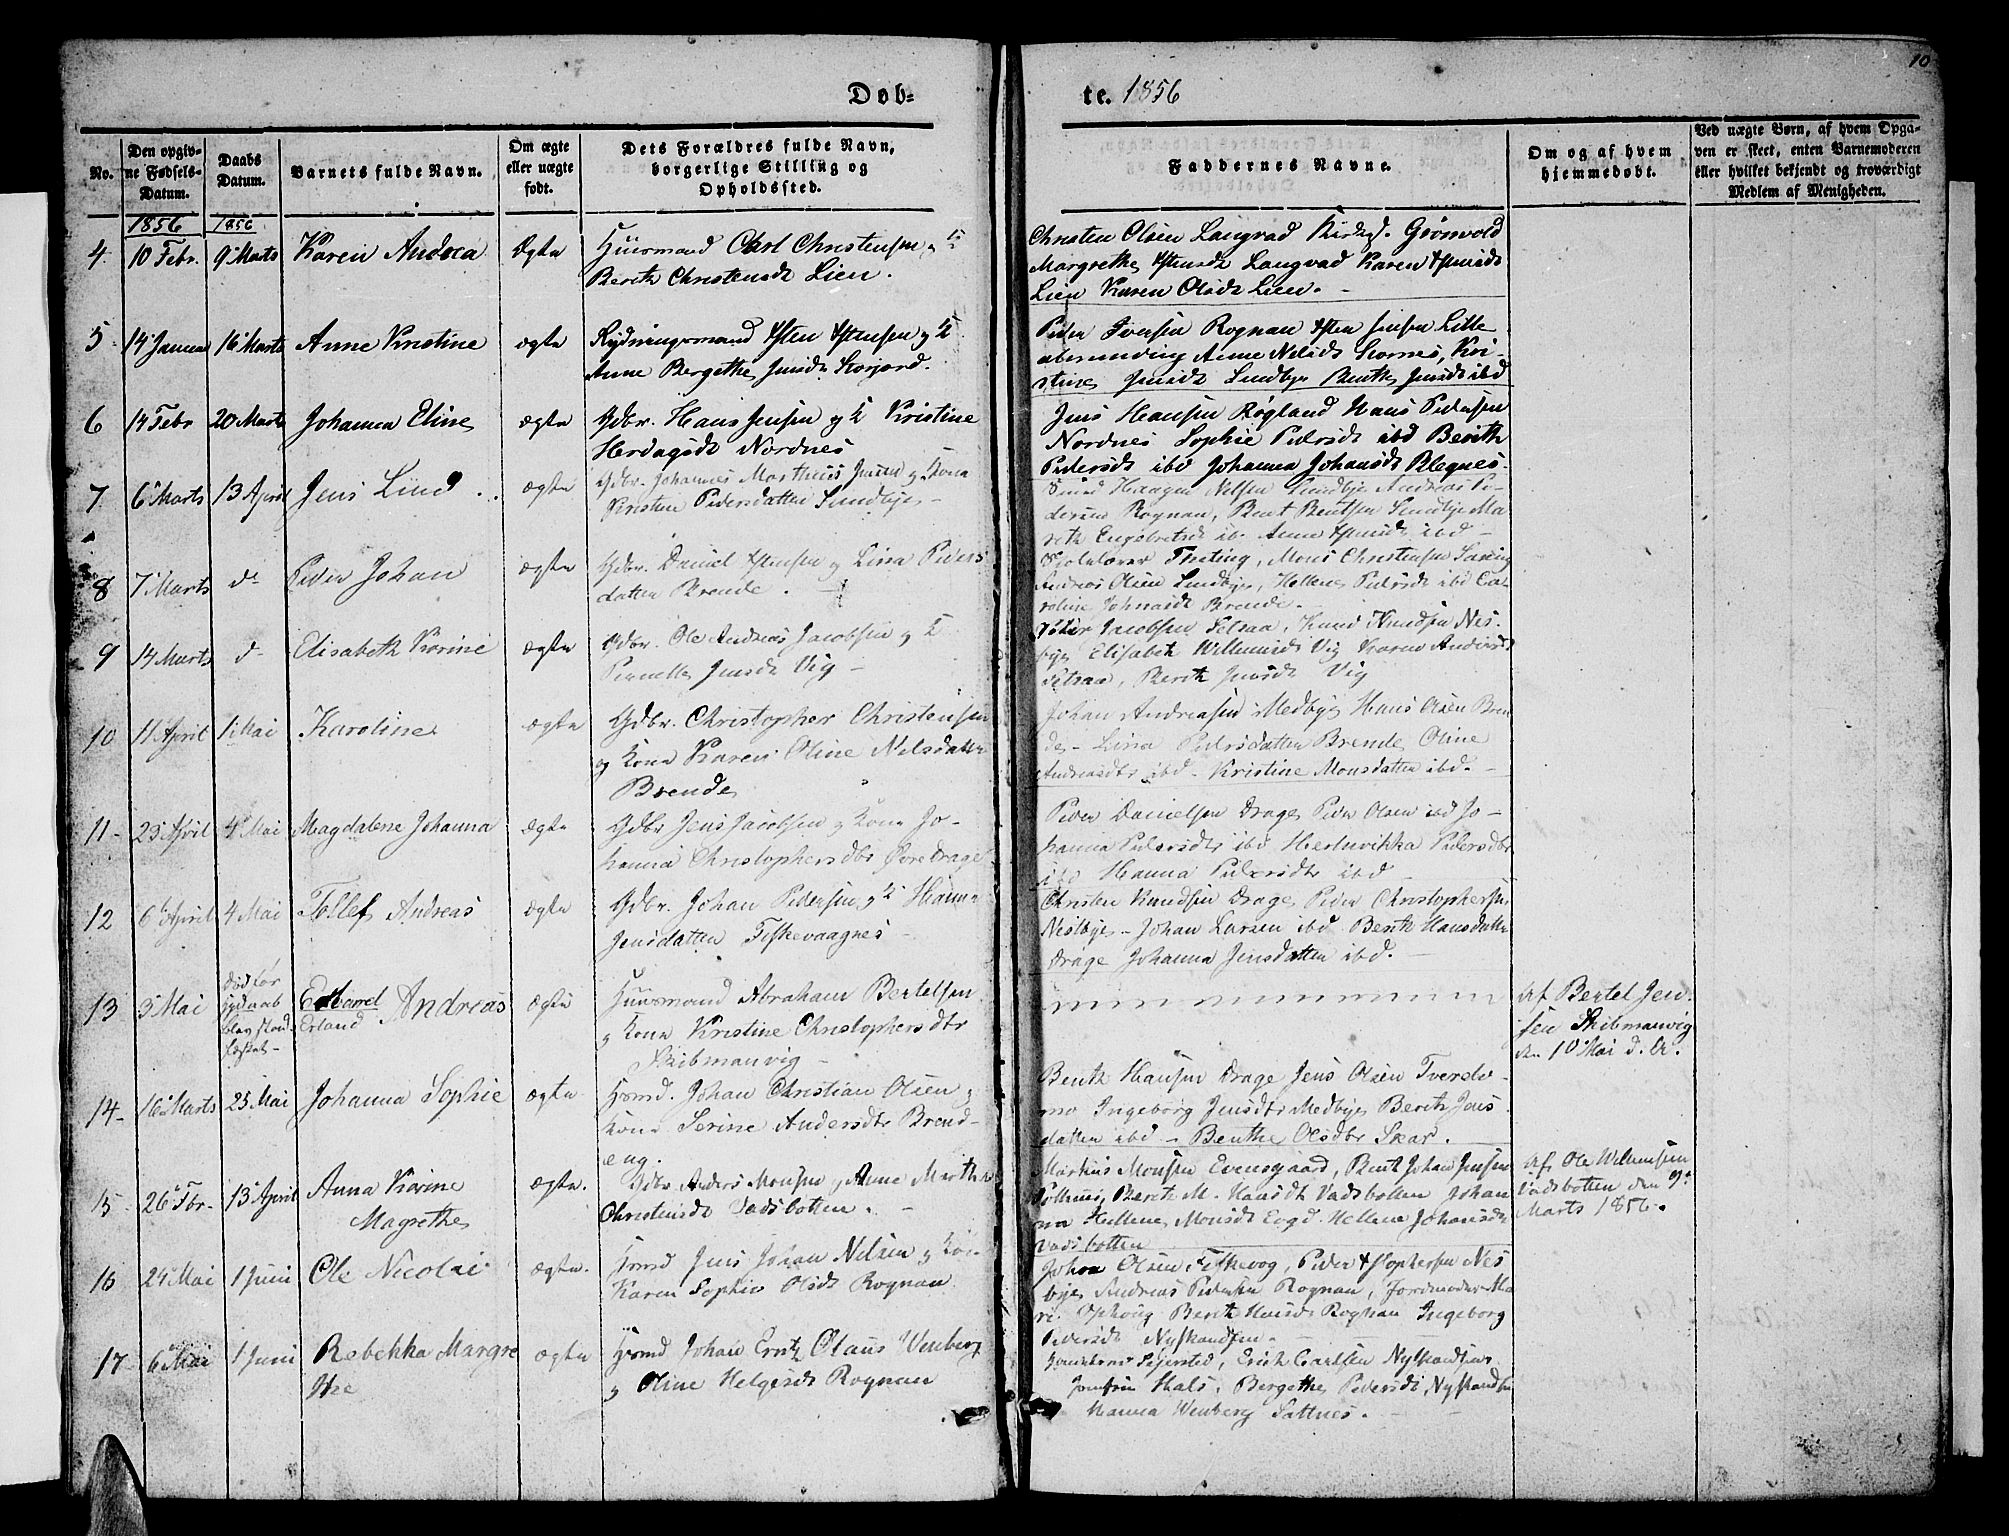 10
Døb=
te. 1856
No.
Den opgiv-
ne Fødsels-
Datum.
Daabs
Datum.
Barnets fulde Navn.
Om ægte
eller uægte
født.
Dets Forældres fulde Navn,
borgerlige Stilling og
Opholdssted.
Faddernes Navne.
Om og af hvem
hjemmedøbt.
Ved uægte Børn, af hvem Opga-
ven er skeet, enten Barnemoderen
eller hvilket bekjendt og troværdigt
Medlem af Menigheden.
1856
1856
4
10 Febr.
9 Marts
Karen Andrea
Ægte
Huusmand Carl Christensen og K
Berith Christensdt Lien.
Christen Olsen Langvad Grønvold
Margrethe Langvad Karen
Lien Karen Olsdt Lien.
5
14 Januar
16 Marts
Anne Kristine
ægte
Rydningsmand Osten Ostensen og K
Anne Bergethe Jensdt Storjord.
Peder Iversen Rognan Osten Jensen Lille
Anne Nelsdt Kri-
stine Jensdt Sundby Benthe Jensdt ibd
6
14 Febr
20 Marts
Johanna Eline
ægte
Gdbr. Hans Jensen og K Kristine
Herdagsdt Nordnes
Jens Hansen Røgland Hans Pedersen
Nordnes Sophie Pedersdt ibd Berith
Pedersdt ibd Johanna Johansdt
7
6 Marts
13 April
Jens Lind
ægte
Gdbr. Johannes Marthinus Jensen og Kona
Kristine Pedersdatter Sundby
Haagen Nelsen Sundby Andreas Pe-
dersen Rognan, Bent Bentsen Sundby Ma
reth Engebretsdt ib. Anne ibd
8
7 Marts
do
Peder Johan
ægte
Gdbr. Daniel Ostensen og Lina Peders
datter Brende.
Skolelærer Mons Christensen Saxing
Andreas Olsen Sundby, Hellene Pedersdt ibd Ca-
roline Johnasdt Brende.
9
14 Marts
do
Elisabeth Karine
ægte
Gdbr. Ole Andreas Jacobsen og K
Pernelle Jensdt Vig
Peder Jacobsen Setsaa, Knud Knudsen Nes-
by Elisabeth Willumsdt Vig Karen Andersdt
Setsaa, Berit Jensdt Vig
10
11 April
1 Mai
Karoline
ægte
Gdbr. Christopher Christensen
og Kona Karen Oline Nelsdatter
Brende
Johan Andreasen Medby Hans Olsen Bren
de - Lina Pedersdatter Brende Oline
Andreasdtr ibd - Kristine Monsdatter ibd.
11
23 April
4 Mai
Magdalene Johanna
Ægte
Gdbr Jens Jacobsen og Kona Jo-
hanna Christophersdtr Øvre Drage
Peder Danielsen Drage Peder Olsen ibd Jo-
hanna Pedersdtr ibd Hedevikka Pedersdtr
ibd Hanna Pedersdtr ibd
12
6 April
4 Mai
Tellef Andreas
ægte
Gdbr. Johan Pedersen og K Hanna
Jensdatter Fiskevaagnes
Christen Knudsen Drage Peder Christophersen
Nesby - Johan Larsen ibd Berith Hansdatter
Drage Johanna Jensdatter ibd.
13
3 Mai
død før
Edvard
Erland Andreas
Ægte
Huusmand Abraham Bertelsen
og Kona Kristine Christophersdtr
Skibmanvig
Af Bertel Jen-
sen Skibmanvig
den 10 Mai d. A.
14
16 Marts
25 Mai
Johanna Sophie
ægte
Hsmd. Johan Christian Olsen og
Kona Serine Andersdtr Brend-
eng.
Benth Hansen Drage Jens Olsen Tverda-
mo Ingeborg Jensdtr Medby Berith Jens
datter ibd - Benthe Olsdtr Skar.
15
26 Fbr.
13 April
Anna Karine
Magrethe
ægte.
Gdbr. Anders Monsen og Anne Martha
Christensdt Vadsbotten.
Martius Monsen Evensgaard, Bent Johan Jensen
Berith M. Hansdt Vadsbotten Johan
na Hellene Monsdt Evgd. Hellene Johansdt
Vadsbotten
Af Ole Willumsen
Vadsbotten den 9
Marts 1856.
16
24 Mai
1 Juni
Ole Nicolai
ægte.
Hsmd Jens Johan Nelsen og Kona
Karen Sophie Olsdt Rognan
Johan Olsen Fiskevog, Peder Nes
by Andreas Pedersen Rognan, Jordmoder Ma
ri Ophoug Berith Hansdt Rognan Ingeborg
Pedersdt Nystrandsen.
17
6 Mai
1 Juni
Rebekka Margre
the
ægte
Hsmd Johan Ernts Olaus Wenberg
og Oline Helgesdt Rognan
Sejersted, Erick Carlsen
Jomfru Hals, Bergethe Pedersdt
Hanna Wenberg Saltnes.